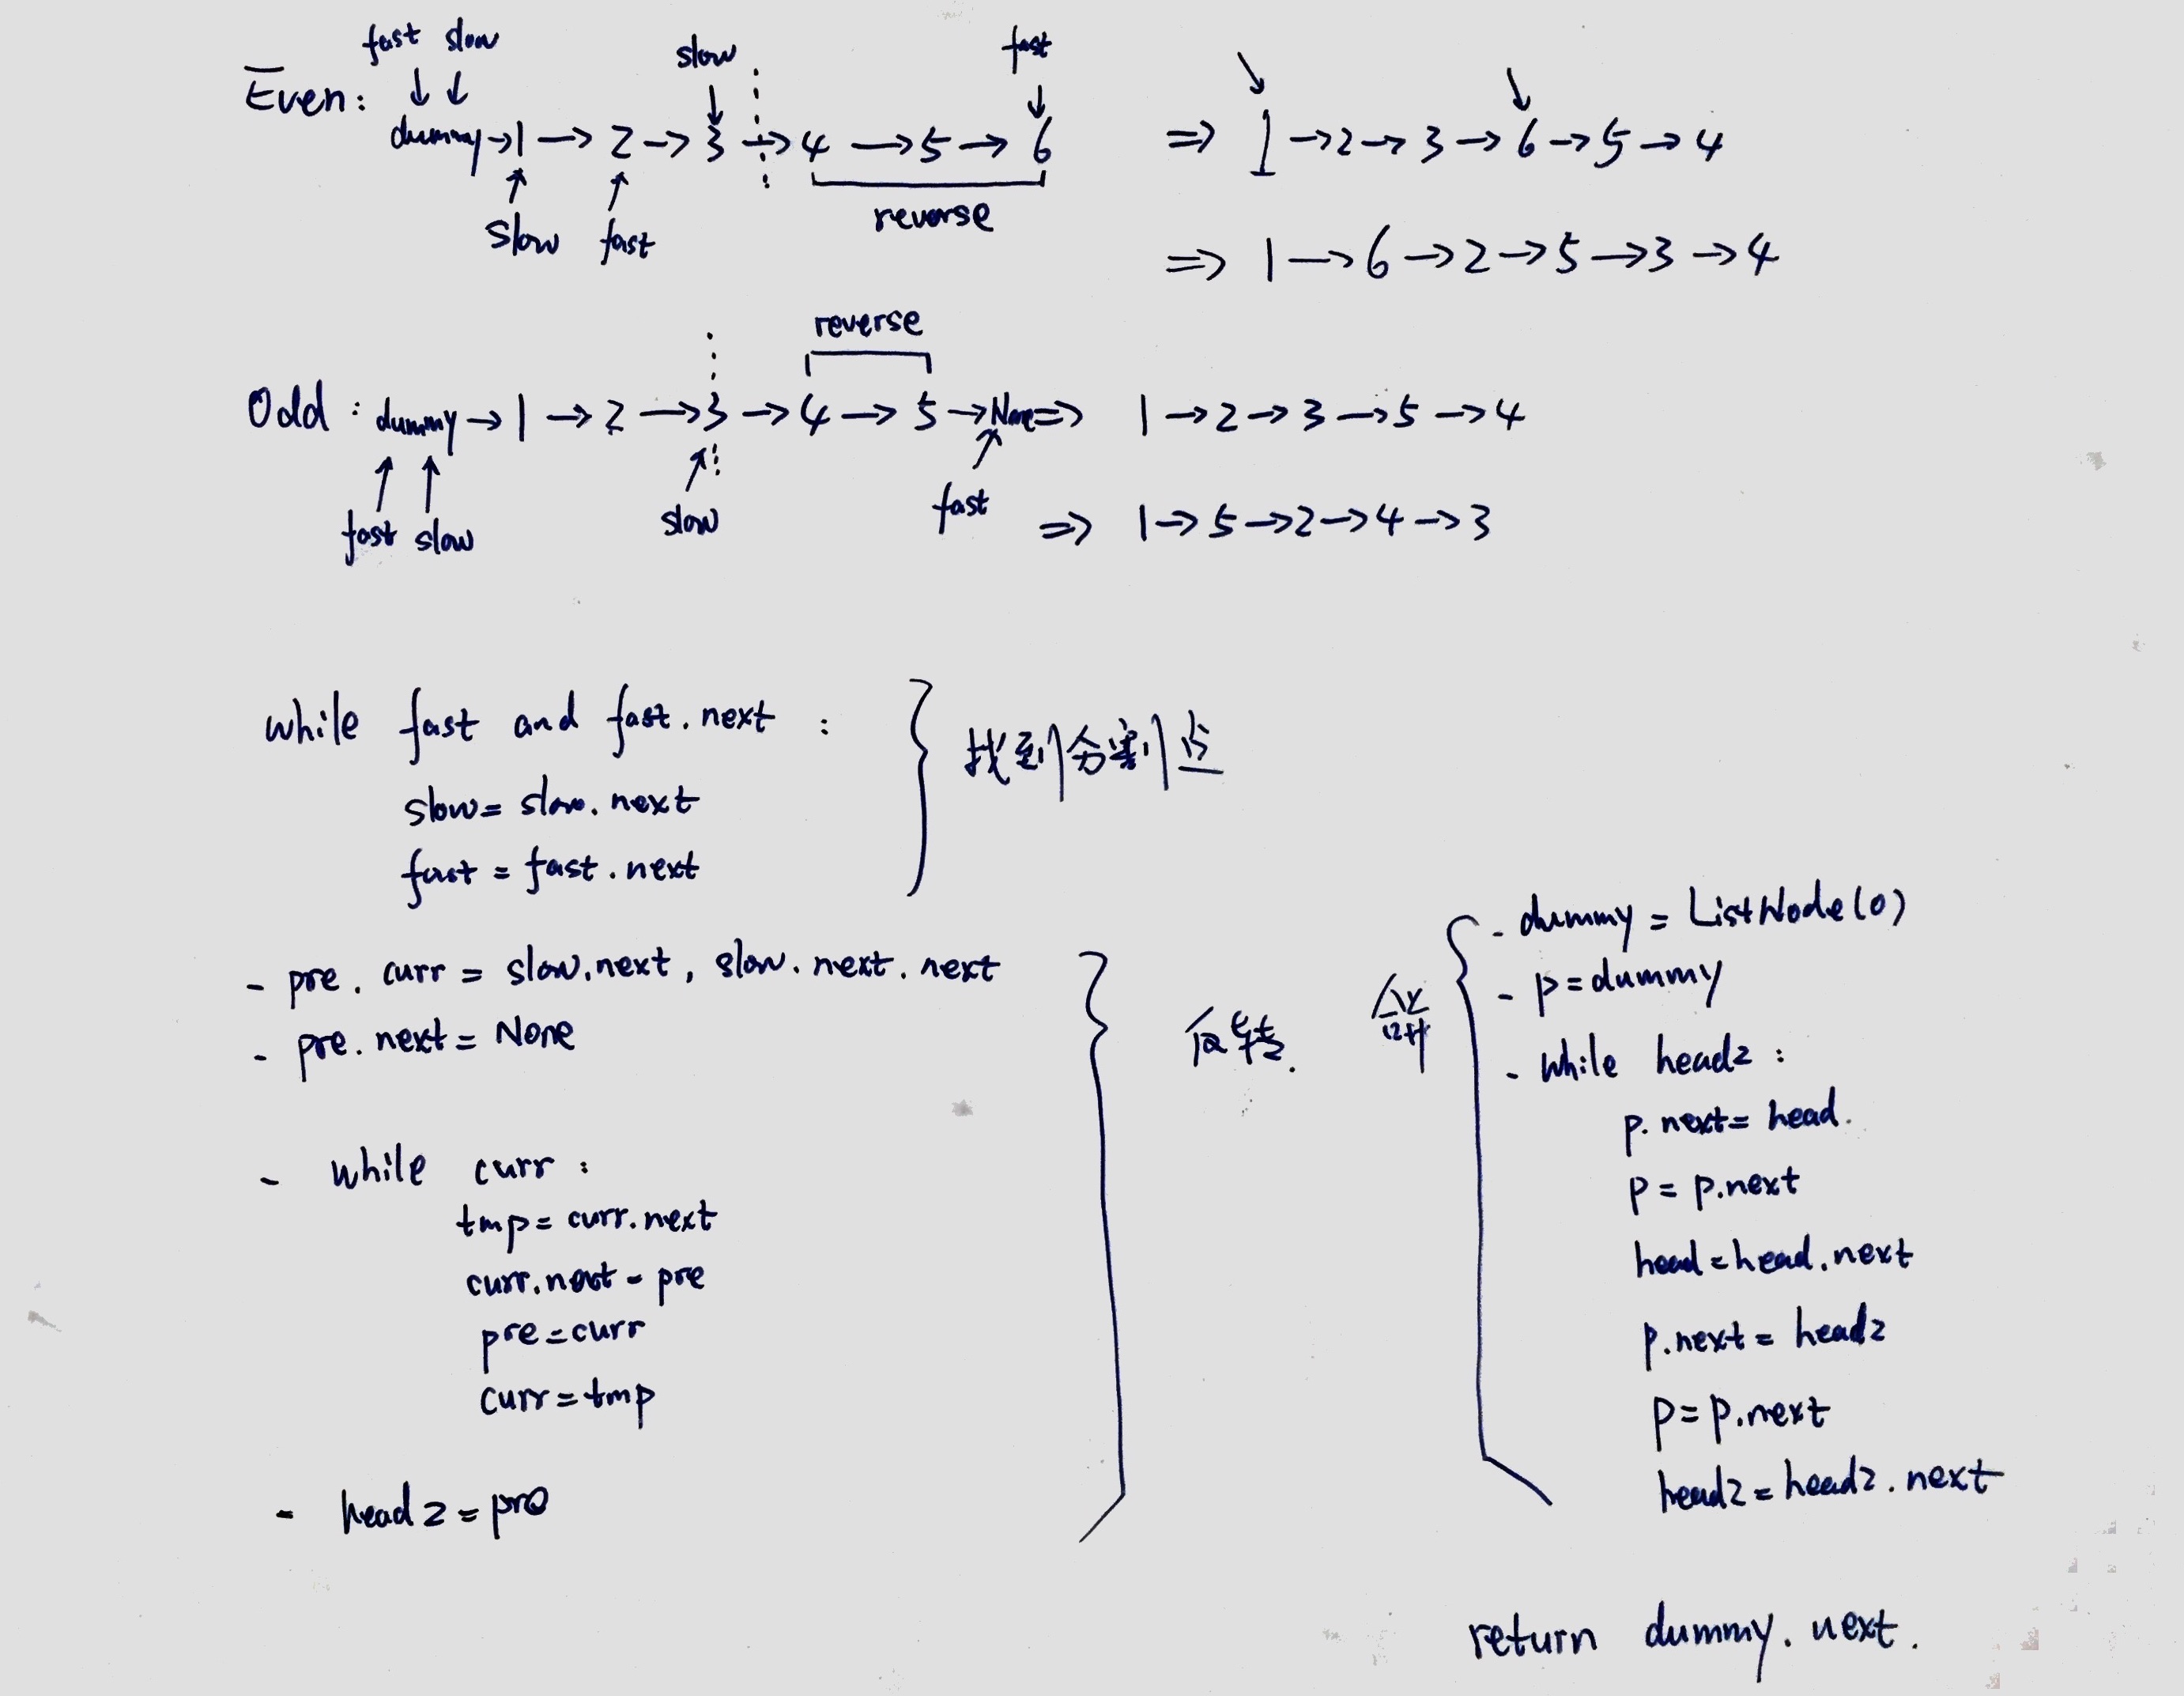 fast slow
slow
fast
Even:
dummy→1→2→3→4→5→6
⇒ 1→2→3→6→5→4
slow fast
reverse
⇒ 1→6→2→5→3→4
reverse
Odd : dummy→1→2→3→4→5→None⇒ 1→2→3→5→4
fast slow
slow
fast
⇒ 1→5→2→4→3
while fast and fast.next :
slow = slow.next
fast = fast.next
找到分割点
- pre. curr = slow.next, slow.next.next
- pre.next = None
- while curr :
tmp = curr.next
curr.next = pre
pre = curr
curr = tmp
- head2 = pre
反转.
- dummy = ListNode(0)
- p = dummy
- while head2 :
p.next = head.
p = p.next
head = head.next
p.next = head2
p = p.next
head2 = head2.next
return dummy.next.